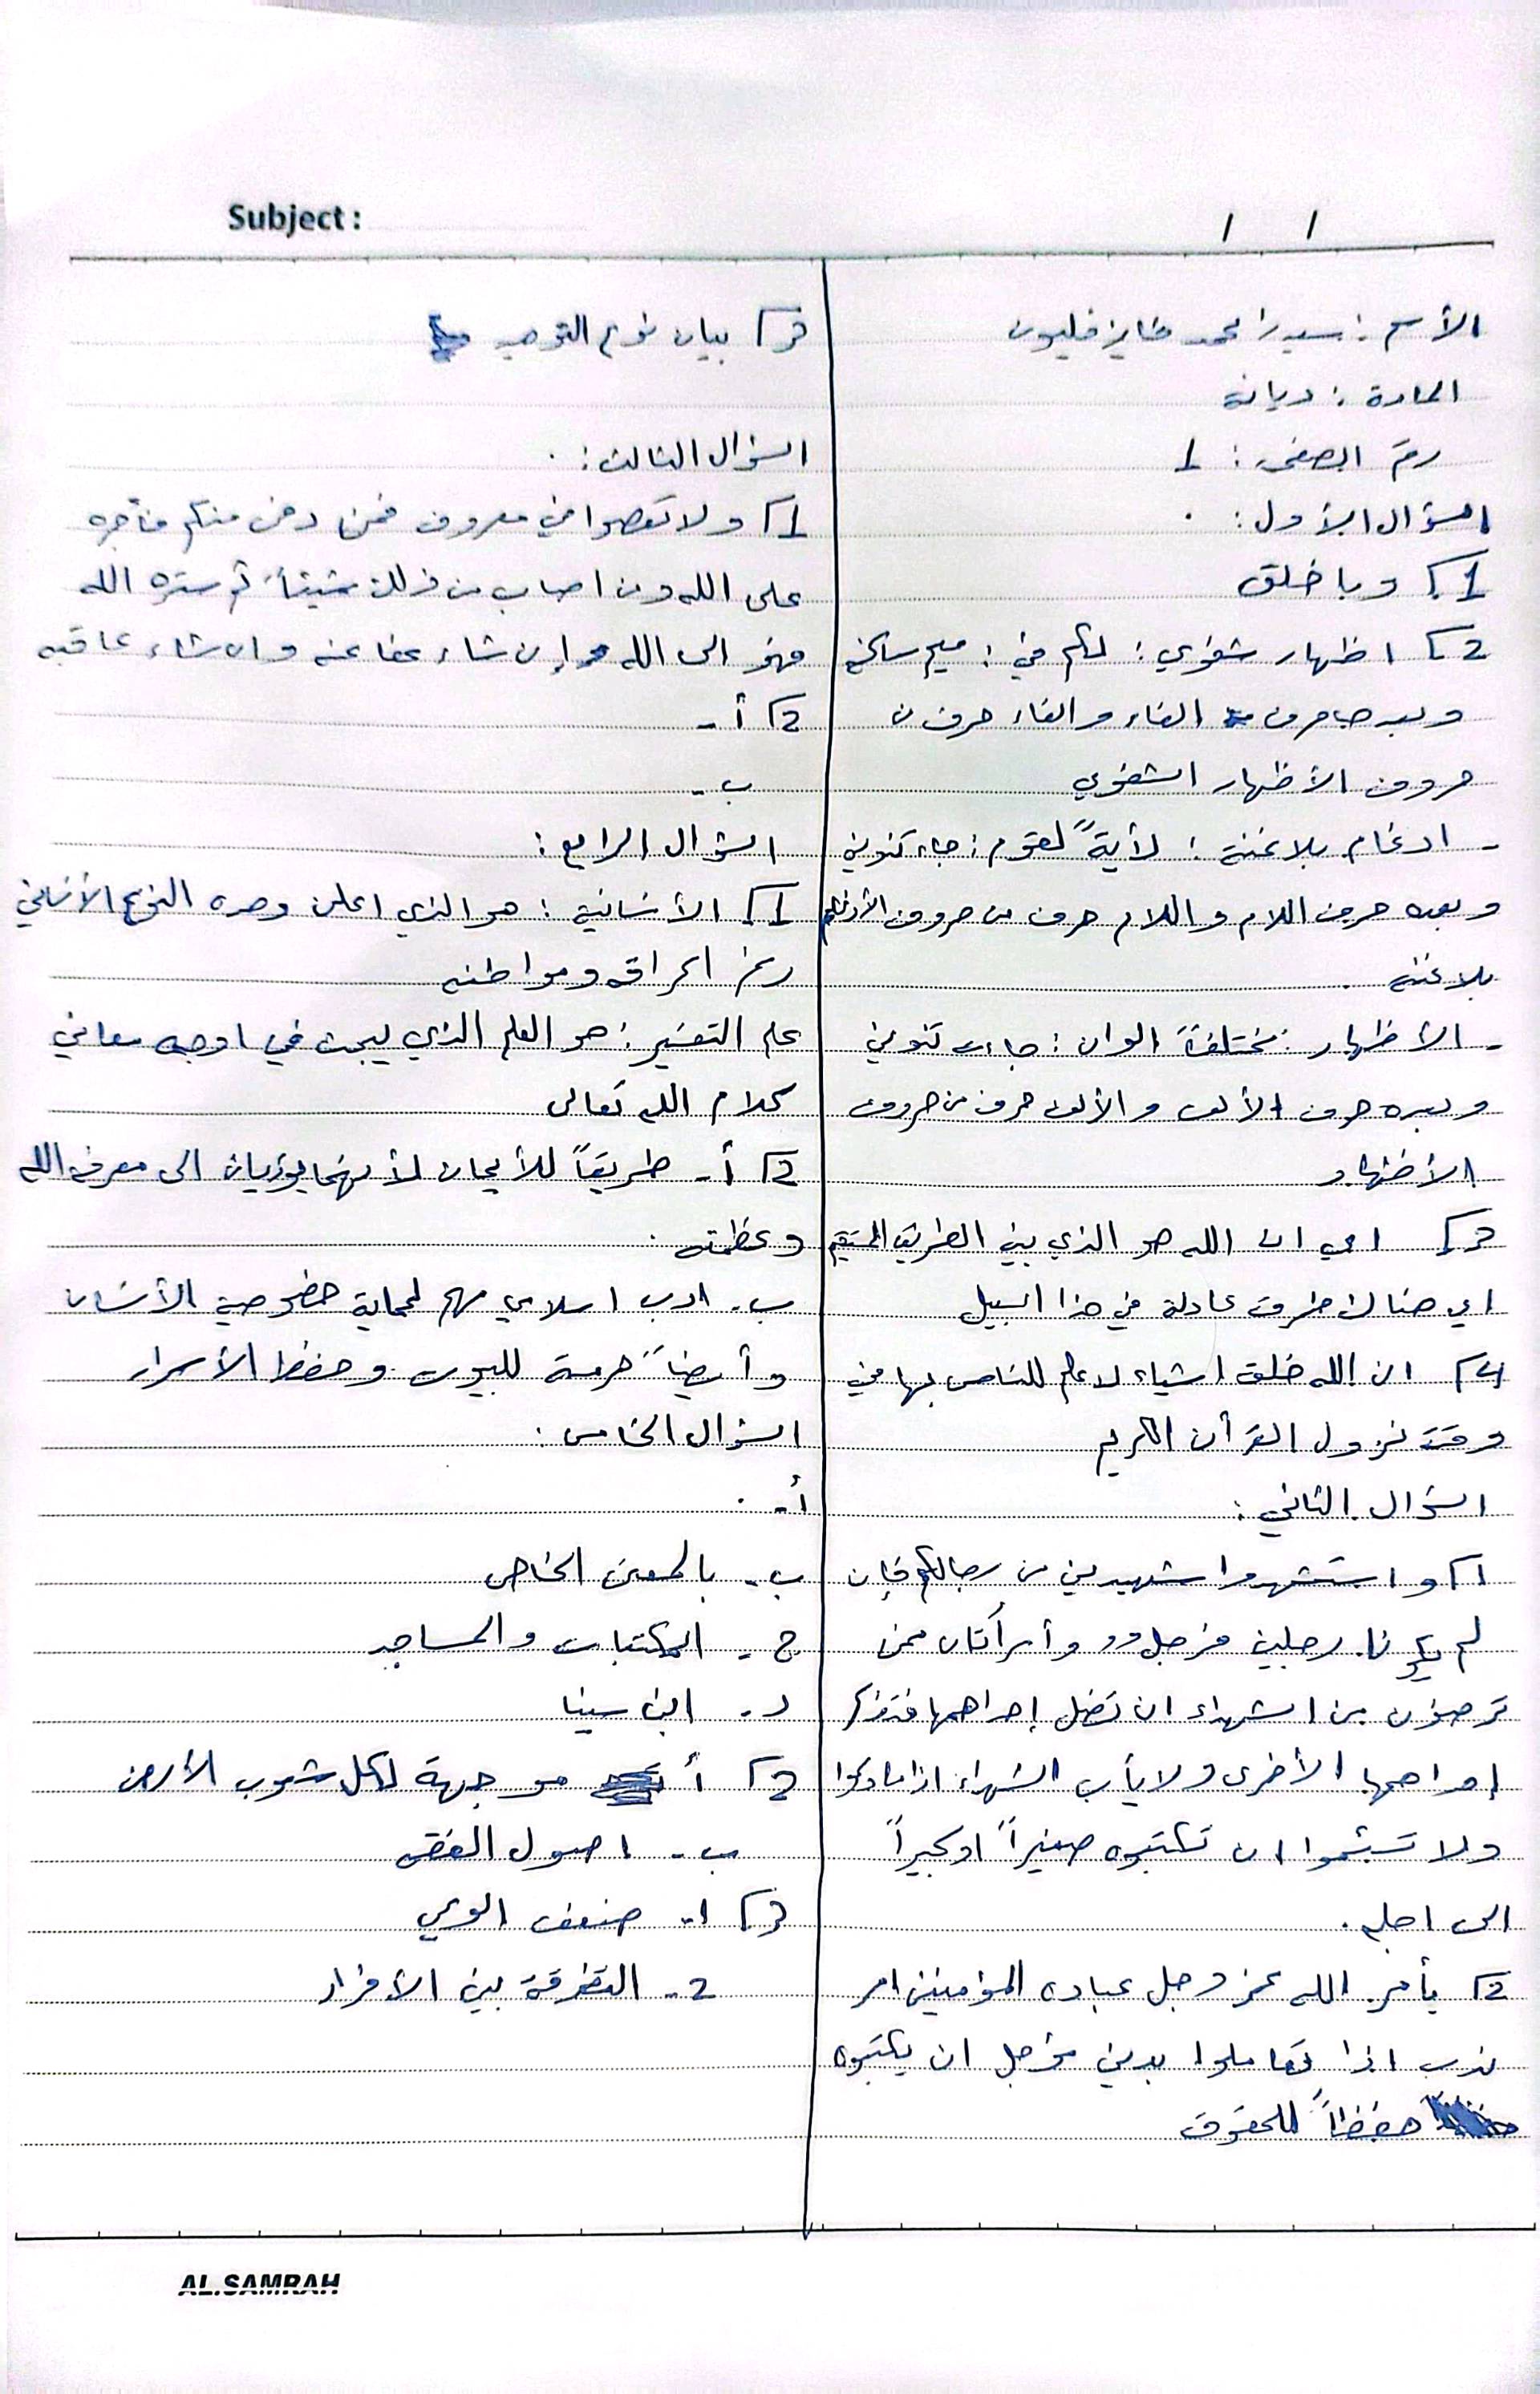 Subject :
/ /
الأسم : سيدرا محمد فايز فليون
المادة : ديانة
رقم الصفحة : 1
السؤال الأول :
1) وبا خلق
2) اظهار شفوي : لكم في : ميم ساكنة
وبعدها حرف الفاء والفاء حرف من
حروف الأظهار الشفوي
- ادغام بلاغنة : لأيةً لقوم : جاء تنوين
وبعده حرف اللام واللام حرف من حروف الأدغام
بلاغنة .
- الأظهار : مختلفةً الوان : جاءت تنوين
وبعده حرف الألف والألف حرف من حروف
الأظهار
3) اي ان الله هو الذي بين الطريق المستقيم
اي هناك طرق عادلة في هذا السبيل
4) ان الله خلق اشياء لا علم للناس بها في
وقت نزول القرآن الكريم
السؤال الثاني :
1) واستشهدوا شهيدين من رجالكم فإن
لم يكونا رجلين فرجل وأمرأتان ممن
ترضون من الشهداء ان تضل إحداهما فتذكر
إحداهما الأخرى ولا يأب الشهداء اذا ما دعوا
ولا تسئموا ان تكتبوه صغيراً او كبيراً
الى اجله .
2) يأمر الله عز وجل عباده المؤمنين امر
ندب اذا تعاملوا بدين مؤجل ان يكتبوه
حفظاً للحقوق
3) بيان نوع التوحيد
السؤال الثالث :
1) ولا تعصوا في معروف فمن وفى منكم فأجره
على الله ومن اصاب من ذلك شيئاً ثم ستره الله
فهو الى الله إن شاء عفا عنه وان شاء عاقبه
2) أ -
ب -
السؤال الرابع :
1) الأنسانية : هو الذي اعلن وحده النوع الأنساني
رغم اعراقه ومواطنه
علم التفسير : هو العلم الذي يبحث في اوجه معاني
كلام الله تعالى
2) أ - طريقاً للأيمان لأنهما يؤديان الى معرفة الله
وعظمته .
ب - ادب اسلامي مهم لحماية خصوصية الأنسان
وأيضاً حرمة للبيوت وحفظ الأسرار
السؤال الخامس :
أ -
ب - بالمعنى الخاص
ج - المكتبات والمساجد
د - ابن سينا
2) أ موجهة لكل شعوب الأرض
ب - اصول الفقه
3) 1 - ضعف الوعي
2 - التفرقة بين الأفراد
AL.SAMRAH